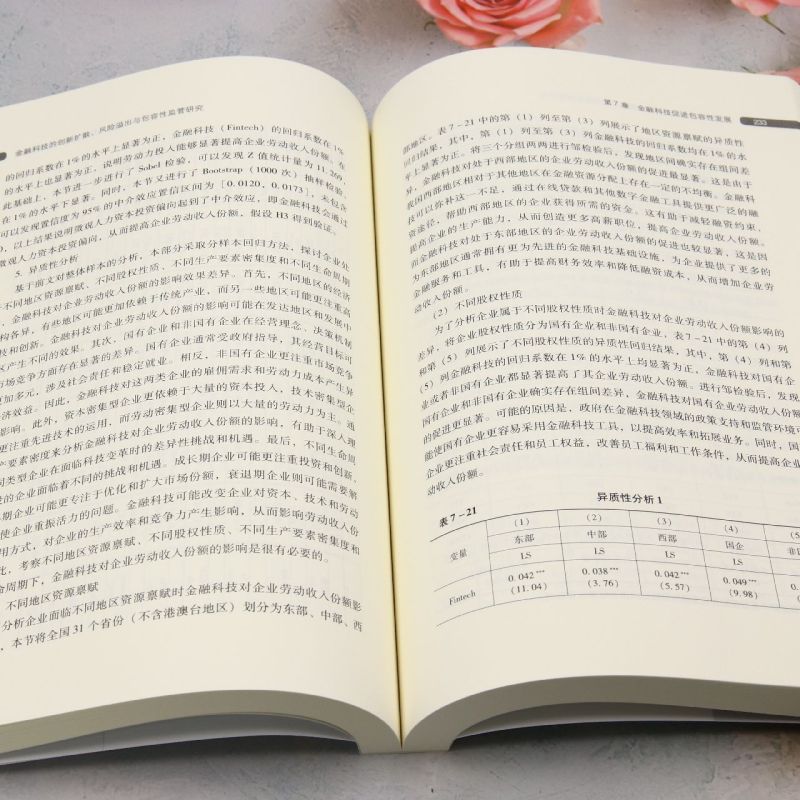 金融科技的创新扩散、风险溢出与包容性监管研究
的回归系数在1%的水平上显著为正,金融科技(Fintech)的回归系数在1%
的水平上也显著为正,说明劳动力投入能够显著提高企业劳动收入份额。在
此基础上,本节进一步进行了 Sobel 检验,可以发现 Z 值统计量为 11.269,
在1%的水平下显著。同时,本节又进行了 Bootstrap(1000 次)抽样检验,
可以发现置信度为95%的中介效应置信区间为[0.0120,0.0173],未包含
0,以上结果说明微观人力资本投资偏向起到了中介效应,即金融科技会通过
微观人力资本投资偏向,从而提高企业劳动收入份额,假设 H3 得到验证。
5. 异质性分析
基于前文对整体样本的分析,本部分采取分样本回归方法,探讨企业处
于不同地区资源禀赋、不同股权性质、不同生产要素密集度和不同生命周期
,金融科技对企业劳动收入份额的影响效果差异。首先,不同地区的经济
构各异,有些地区可能更加依赖于传统产业,而另一些地区可能更注重高
技和创新。金融科技对企业劳动收入份额的影响可能在发达地区和发展中
区产生不同的效果。其次,国有企业和非国有企业在经营理念、决策机制
市场竞争方面存在显著的差异。国有企业通常受政府指导,其经营目标可
更加多元,涉及社会责任和稳定就业。相反,非国有企业更注重市场竞争
济效益。因此,金融科技对这两类企业的雇佣需求和劳动力成本产生异
影响。此外,资本密集型企业更依赖于大量的资本投入,技术密集型企
更注重先进技术的运用,而劳动密集型企业则以大量的劳动力为主。通
产要素密集度来分析金融科技对企业劳动收入份额的影响,有助于深入理
同类型企业在面临科技变革时的差异性挑战和机遇。最后,不同生命周
的企业面临着不同的挑战和机遇。成长期企业可能更注重投资和创新,
期企业可能更专注于优化和扩大市场份额,衰退期企业则可能需要解
使企业重振活力的问题。金融科技可能改变企业对资本、技术和劳动
用方式,对企业的生产效率和竞争力产生影响,从而影响劳动收入份
此,考察不同地区资源禀赋、不同股权性质、不同生产要素密集度和
命周期下,金融科技对企业劳动收入份额的影响是很有必要的。
不同地区资源禀赋
分析企业面临不同地区资源禀赋时金融科技对企业劳动收入份额影
,本节将全国31个省份(不含港澳台地区)划分为东部、中部、西
第7章 金融科技促进包容性发展 233
部地区。表7-21中的第(1)列至第(3)列展示了地区资源禀赋的异质性
回归结果,其中,第(1)列至第(3)列金融科技的回归系数均在1%的水
平上显著为正。将三个分组两两进行邹检验后,发现地区间确实存在组间差
异,金融科技对处于西部地区的企业劳动收入份额的促进最显著。这是由于
我国西部地区相对于其他地区在金融资源分配上存在一定的不均衡。金融科
技可以弥补这一不足,通过在线贷款和其他数字金融工具提供更广泛的融
资途径,帮助西部地区的企业获得所需的资金。这有助于减轻融资约束,
提高企业的生产能力,从而创造更多高薪职位,提高企业劳动收入份额。
而金融科技对处于东部地区的企业劳动收入份额的促进也较显著、这是因
为东部地区通常拥有更为先进的金融科技基础设施,为企业提供了更多的
金融服务和工具,有助于提高财务效率和降低融资成本,从而增加企业劳
动收入份额。
(2)不同股权性质
为了分析企业属于不同股权性质时金融科技对企业劳动收入份额影响的
差异,将企业股权性质分为国有企业和非国有企业,表7-21中的第(4)列
和第(5)列展示了不同股权性质的异质性回归结果,其中,第(4)列和第
(5)列金融科技的回归系数在1%的水平上均显著为正,金融科技对国有企
业或者非国有企业都显著提高了其企业劳动收入份额。进行邹检验后,发现
国有企业和非国有企业确实存在组间差异,金融科技对国有企业劳动收入份
的促进更显著。可能的原因是,政府在金融科技领域的政策支持和监管环境可
能使国有企业更容易采用金融科技工具,以提高效率和拓展业务。同时,国
企业更注重社会责任和员工权益,改善员工福利和工作条件,从而提高企业
动收入份额。
表7-21 异质性分析1
变量 (1) (2) (3) (4) (5
东部 中部 西部 国企 非
LS LS LS LS
Fintech 0.042*** 0.038*** 0.042*** 0.049*** 0.
(11.04) (3.76) (5.57) (9.98) (